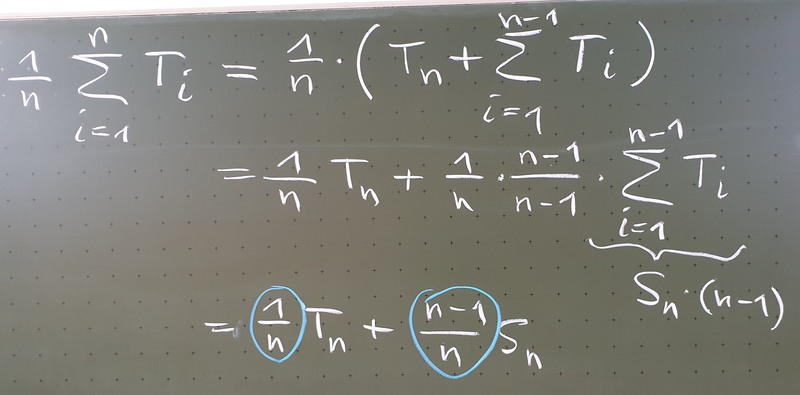 1/n ∑_{i=1}^{n} T_i = 1/n · ( T_n + ∑_{i=1}^{n-1} T_i )
= 1/n T_n + 1/n · (n-1)/(n-1) · ∑_{i=1}^{n-1} T_i
S_n · (n-1)
= 1/n T_n + (n-1)/n S_n